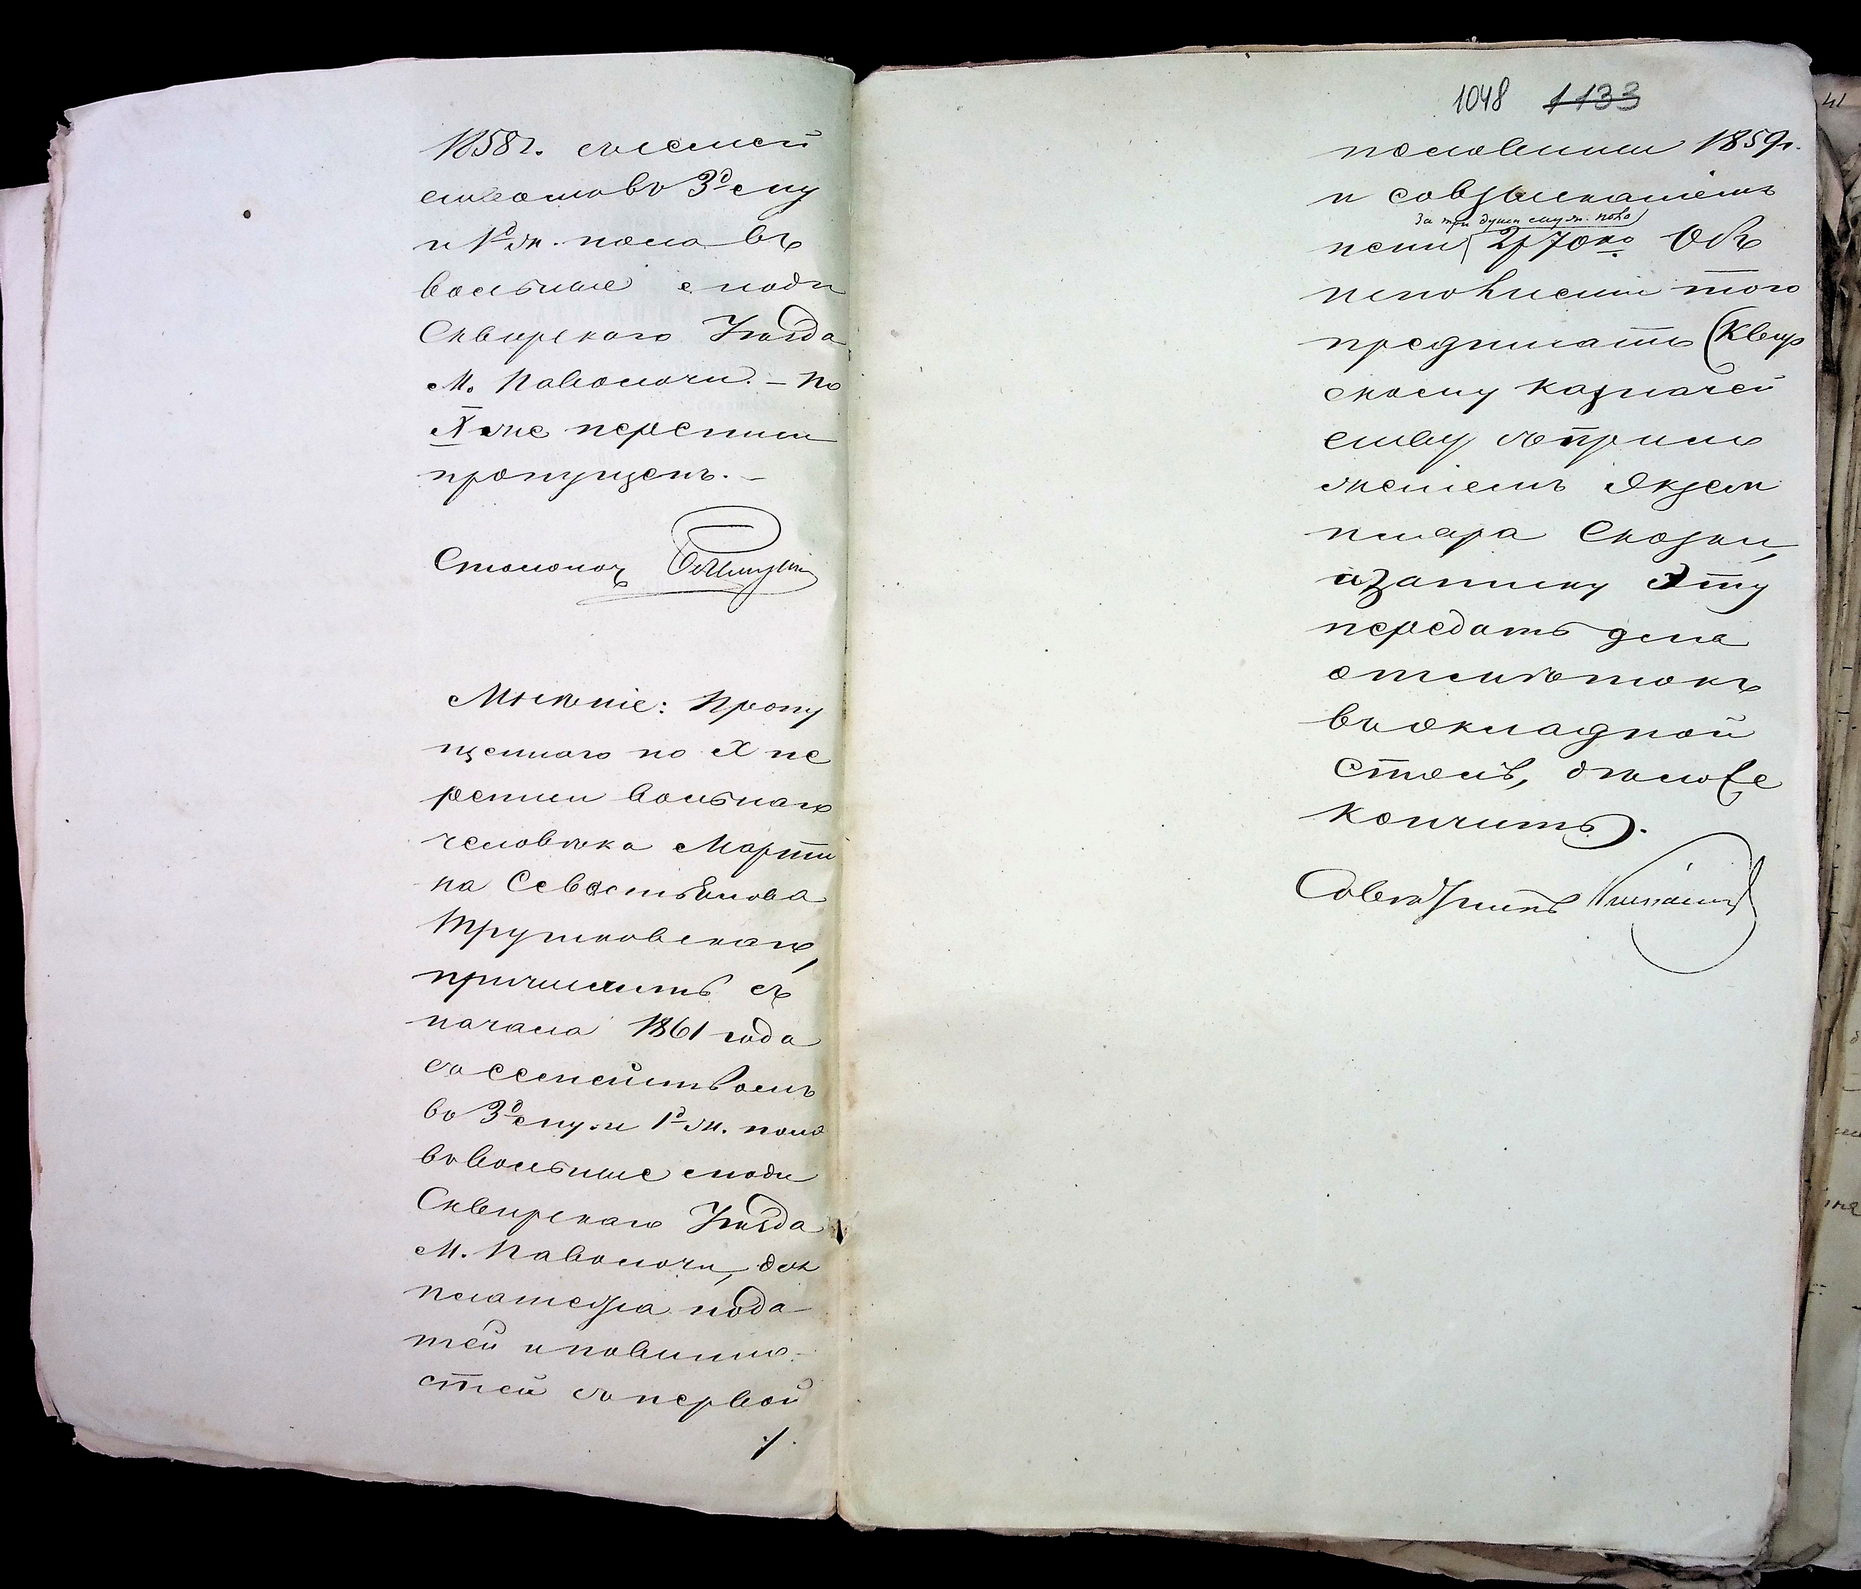 1858 г. съ семей
ствомъ во 3<sup>д</sup> му
и 1<sup>д</sup> ж. пола въ
вольные люди
Сквирскаго Уѣзда
М. Паволочи. – По
X же переписи
пропущенъ. –
Столонач
Мнѣніе: Пропу
щеннаго по X пе
реписи вольнаго
человѣка Марти
на Севостьянова
Трушковскаго,
причислить съ
начала 1861 года
съ семействомъ
во 3<sup>д</sup> му. и 1<sup>д</sup> ж. пола
въ вольные люди
Сквирскаго Уѣзда
М. Паволочи, для
платежа пода
тей и повинно-
стей съ первой
./.
1048 1133
половины 1859 г.
и со взысканіемъ
за три души муж. пола
пени 2 р 70 ко Объ
исполненіи того
предписать Сквир
скому казначей
ству съ прило
женіемъ экзем
пляра Сказки,
а записку эту
передать для
отмѣтокъ
въ окладной
столъ, дѣло же
кончить.
Совѣтникъ